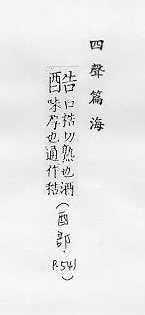 四聲篇海
酷
口梏切熟也酒
味厚也通作
(酉部.
P.541)